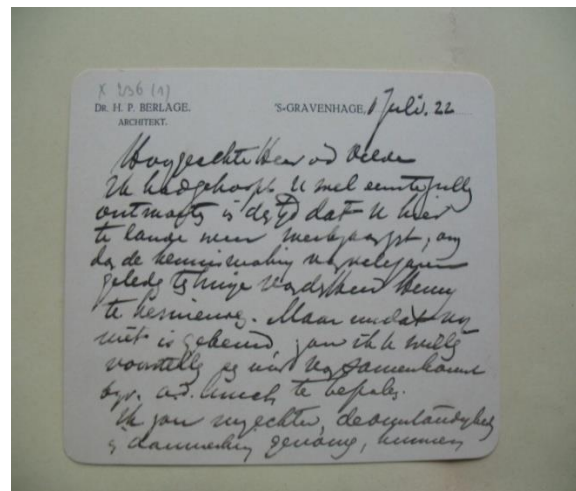 X 256 (1)
DR. H. P. BERLAGE.
ARCHITEKT.
'S-GRAVENHAGE, 1 Juli. 22
Hooggeachte Heer vd Velde
Ik had gehoopt U wel eens te zullen
ontmoeten in de tijd dat U hier
te lande weer werkzaam zijt, om
de kennismaking van vele jaren
geleden
te hernieuwen. Maar omdat
niet is gebeurd, zou ik U willen
voorstellen samenkomst
bijv. a.d. lunch te bepalen.
Ik zou mij echter, de omstandigheden
in aanmerking genomen, kunnen